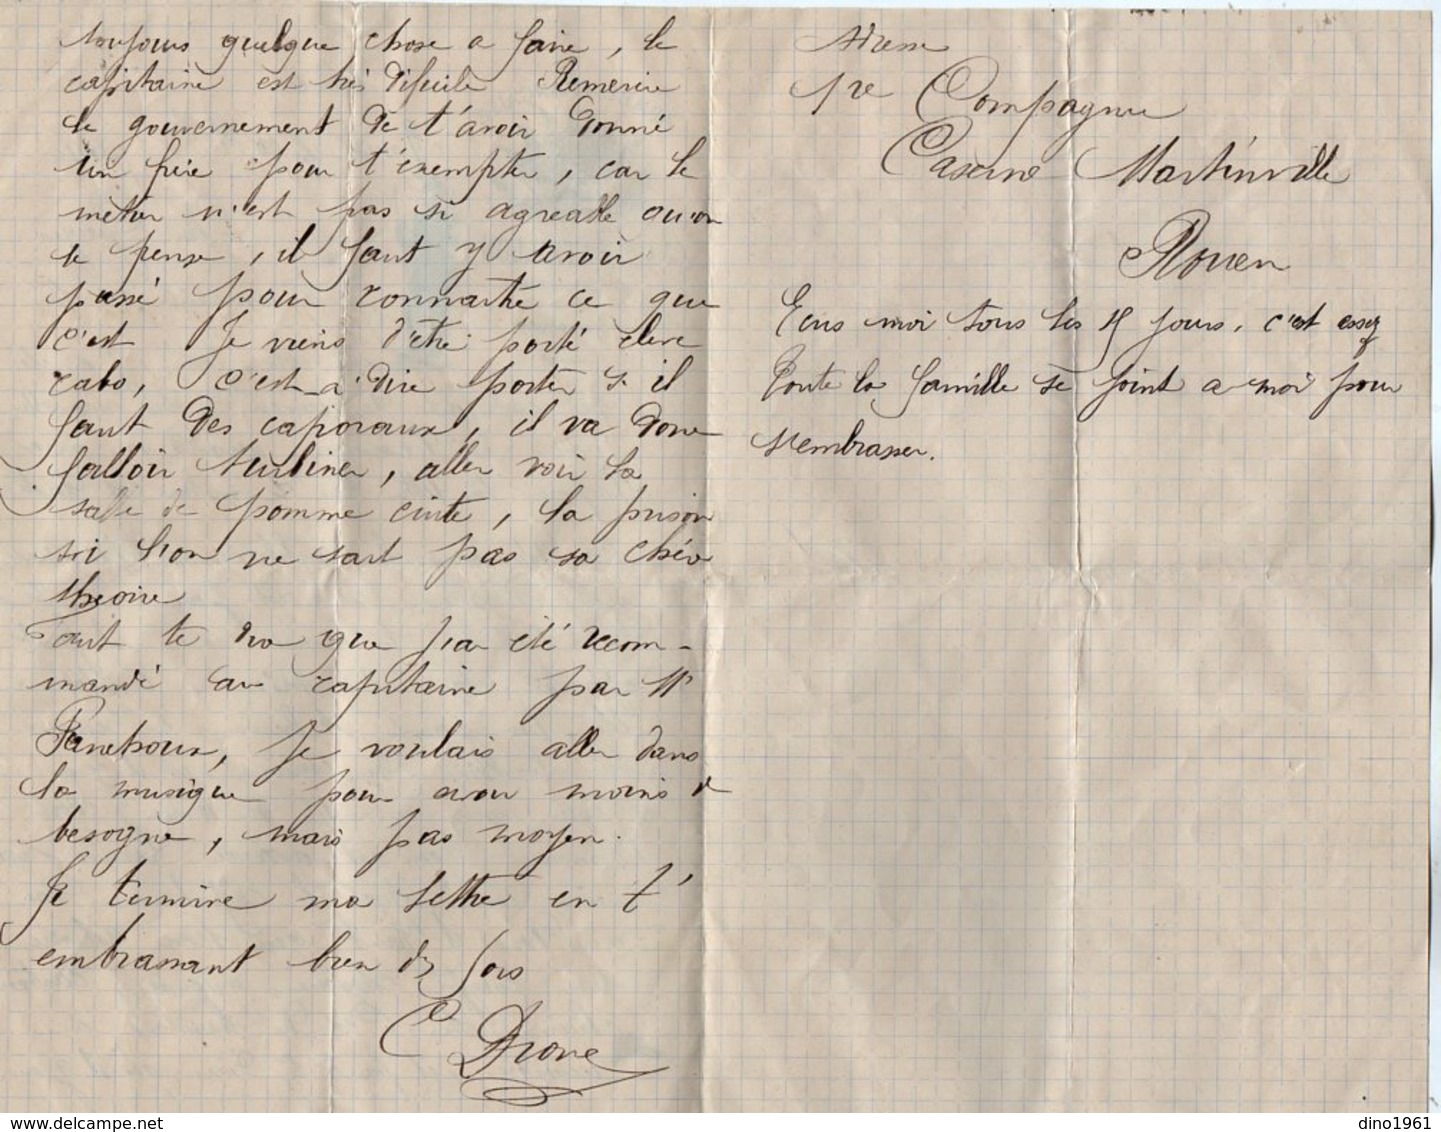 toujours quelque chose a faire, le
capitaine est très dificile Remercie
le gouvernement de t'avoir donné
un frère pour t'exempter, car le
métier n'est pas si agreable qu'on
le pense, il faut y avoir
passé pour connaitre ce que
c'est Je viens d'être porté eleve
cabo, c'est a dire porter s. il
faut des caporaux, il va donc
falloir turbiner, aller voir la
salle de pomme cuite, la prison
si l'on ne sait pas sa chère
theorie
Tant te dira que j'ai été recom-
mandé au capitaine par Mr
je voulais aller dans
la musique pour avoir moins d
besogne, mais pas moyen.
Je termine ma lettre en t'
embrassant bien des fois
C Drone
Adresse
1re Compagnie
Caserne Martinville
Rouen
Ecris moi tous les 15 jours. c'est assez
Toute la famille se joint a moi pour
t'embrasser.
dino1961